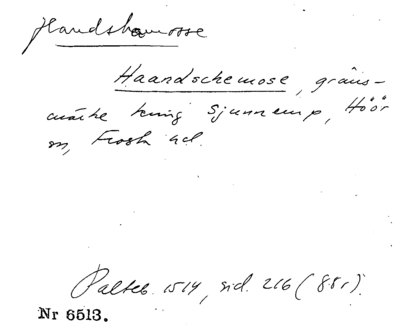 Handskamosse
Haandschemose, gräns-
märke kring Sjunnerup, Höör
sn, Frosta hd.
Palteb. 1514, sid. 216 (88r).
Nr 6513.